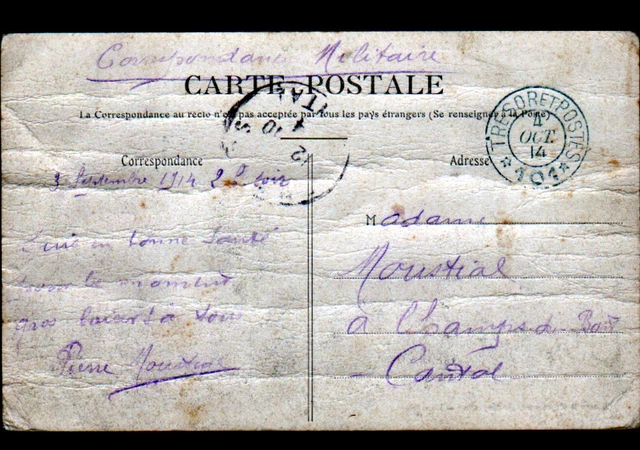 Correspondance Militaire
CARTE POSTALE
La Correspondance au recto n'est pas acceptée par tous les pays étrangers (Se renseigner à la Poste)
Correspondance
Adresse
TRESOR ET POSTES
4
OCT.
14
*101*
3 Septembre 1914 2 h soir
Suis en bonne santé
pour le moment
gros baisers à tous
Pierre Moustial
Madame
Moustial
à Champs
Cantal